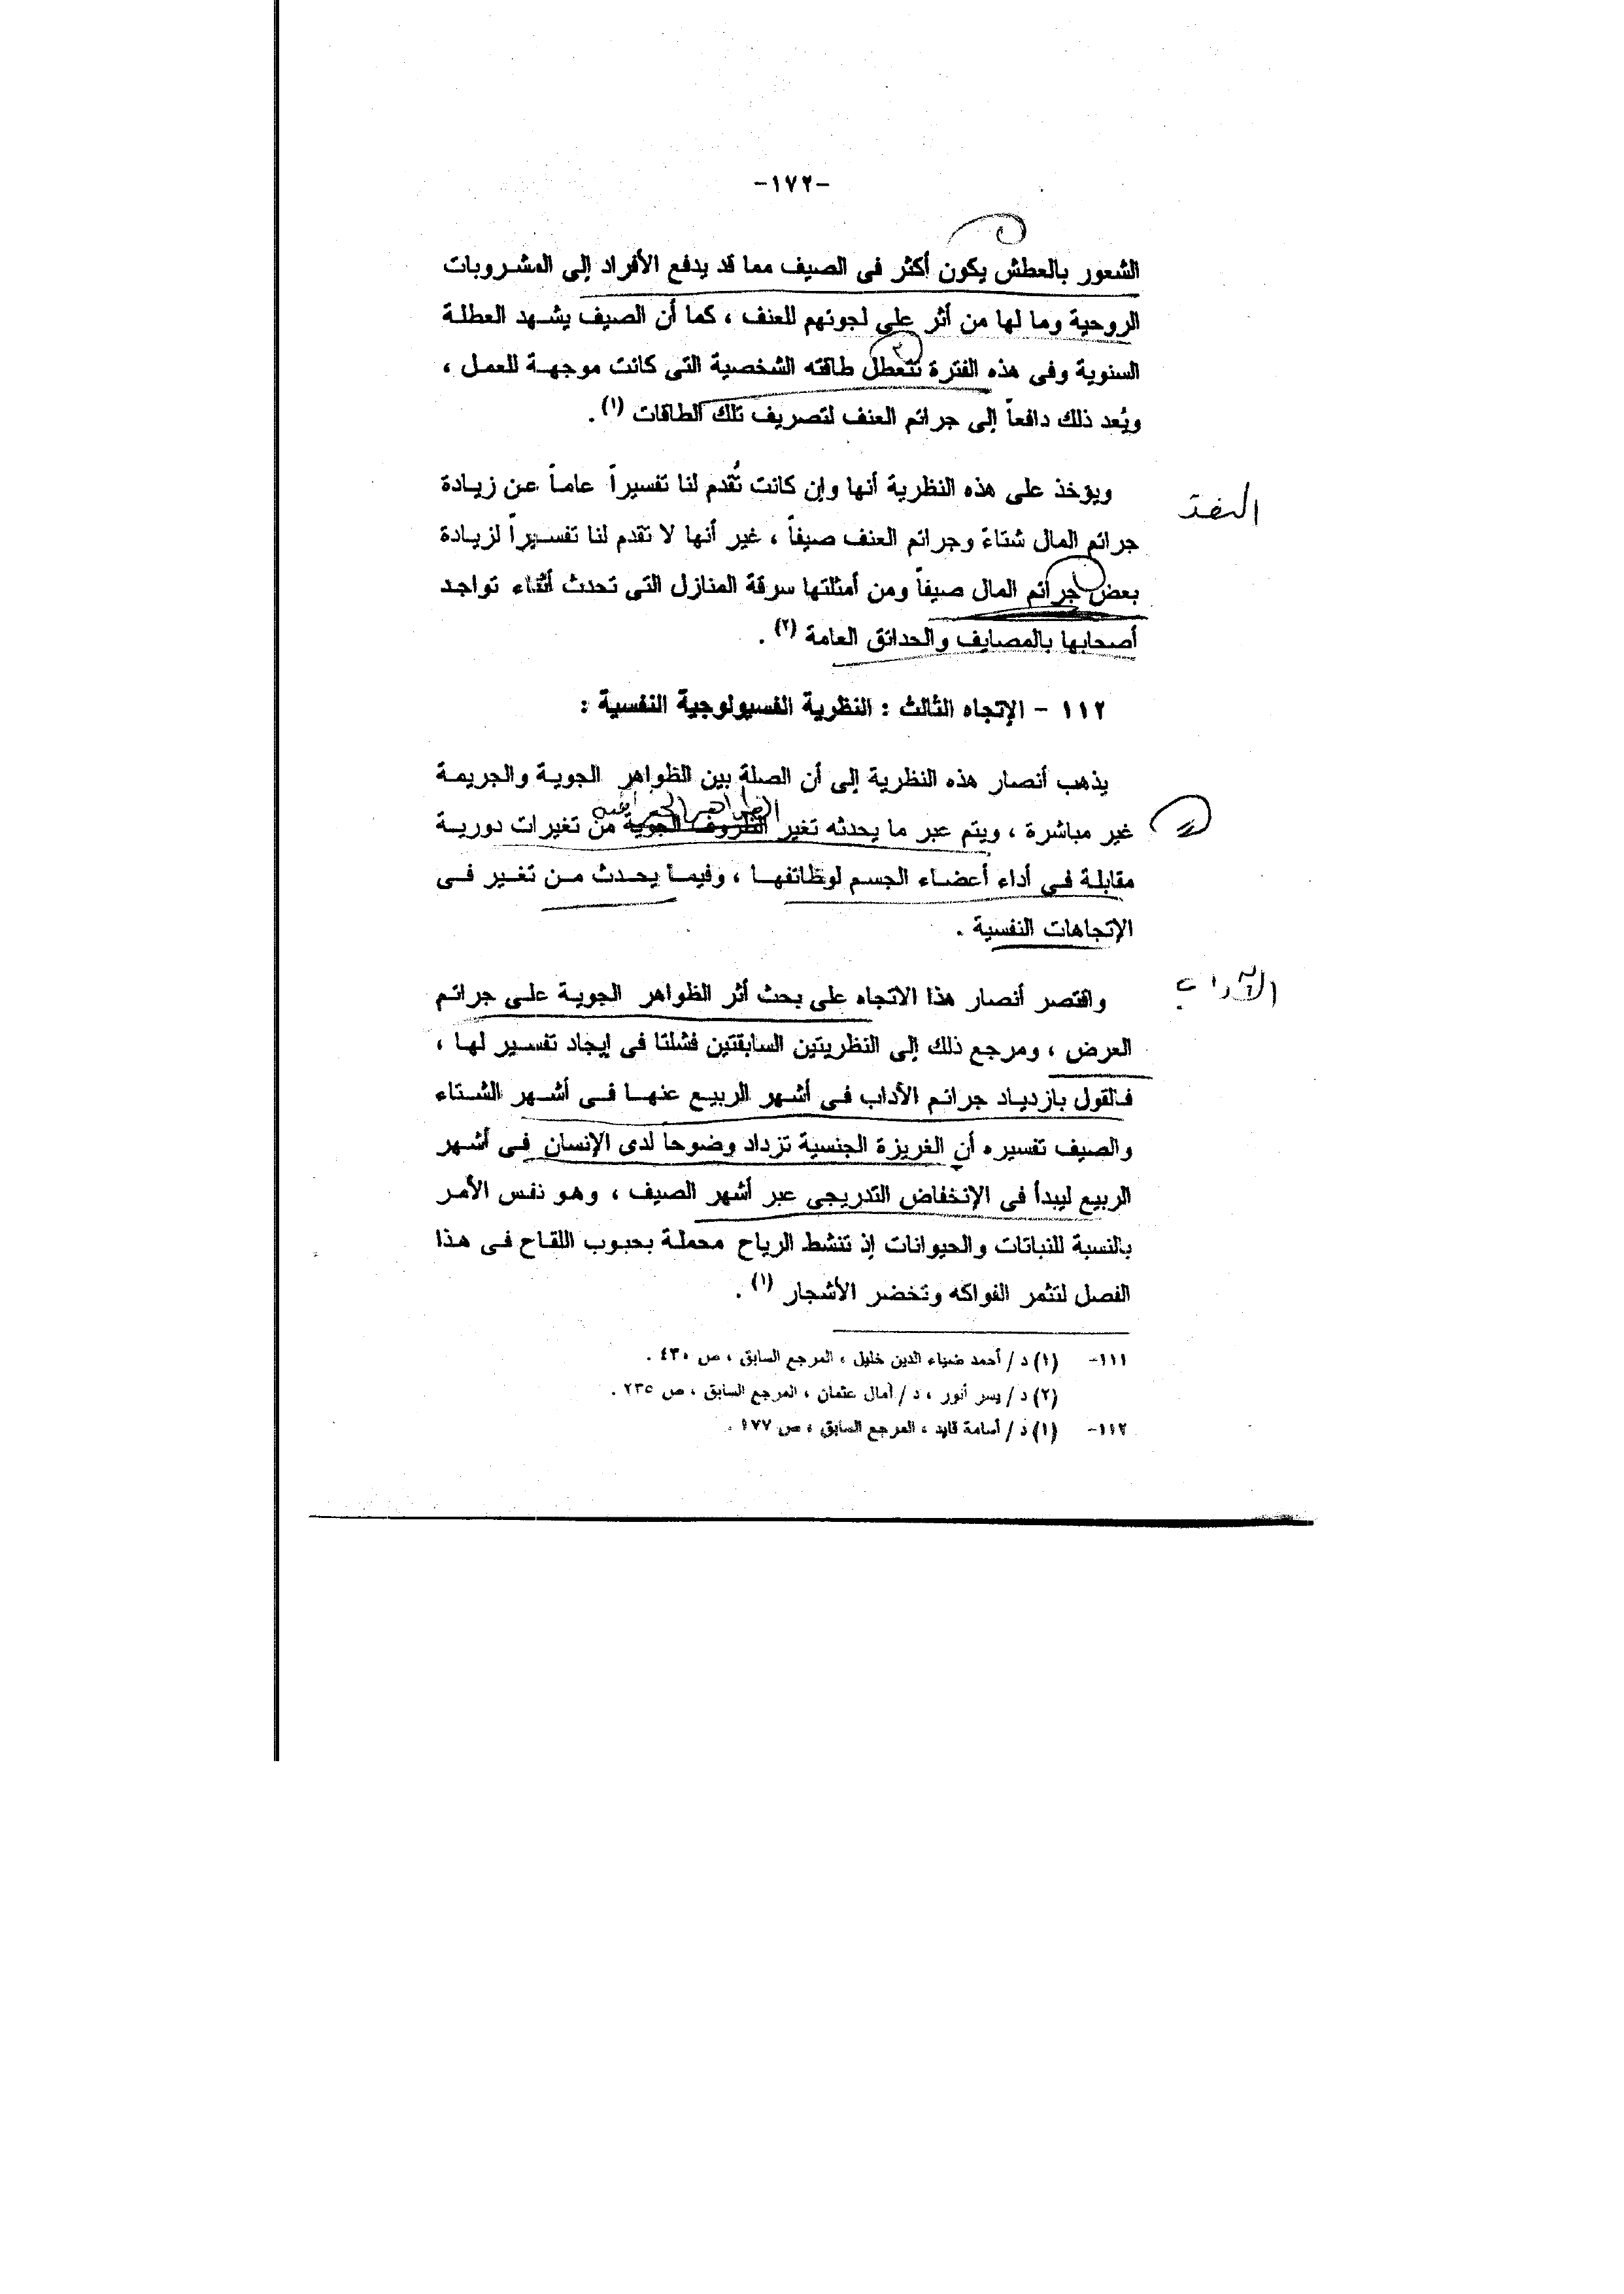 -١٧٢-
الشعور بالعطش يكون أكثر فى الصيف مما قد يدفع الأفراد إلى المشروبات
الروحية وما لها من أثر على لجوئهم للعنف ، كما أن الصيف يشهد العطلة
السنوية وفى هذه الفترة تتعطل طاقته الشخصية التى كانت موجهة للعمل ،
ويُعد ذلك دافعاً إلى جرائم العنف لتصريف تلك الطاقات (١) .
ويؤخذ على هذه النظرية أنها وإن كانت تُقدم لنا تفسيراً عاماً عن زيادة
النقد
جرائم المال شتاءً وجرائم العنف صيفاً ، غير أنها لا تقدم لنا تفسيراً لزيادة
بعض جرائم المال صيفاً ومن أمثلتها سرقة المنازل التى تحدث أثناء تواجد
أصحابها بالمصايف والحدائق العامة (٢) .
١١٢ - الإتجاه الثالث : النظرية الفسيولوجية النفسية :
يذهب أنصار هذه النظرية إلى أن الصلة بين الظواهر الجوية والجريمة
الظواهر الجغرافية
غير مباشرة ، ويتم عبر ما يحدثه تغير الظروف الجوية من تغيرات دورية
مقابلة فى أداء أعضاء الجسم لوظائفها ، وفيما يحدث من تغير فى
الإتجاهات النفسية .
الآداب
واقتصر أنصار هذا الاتجاه على بحث أثر الظواهر الجوية على جرائم
العرض ، ومرجع ذلك إلى النظريتين السابقتين فشلتا فى إيجاد تفسير لها ،
فالقول بازدياد جرائم الآداب فى أشهر الربيع عنها فى أشهر الشتاء
والصيف تفسيره أن الغريزة الجنسية تزداد وضوحا لدى الإنسان فى أشهر
الربيع ليبدأ فى الإنخفاض التدريجى عبر أشهر الصيف ، وهو نفس الأمر
بالنسبة للنباتات والحيوانات إذ تنشط الرياح محملة بحبوب اللقاح فى هذا
الفصل لتثمر الفواكه وتخضر الأشجار (١) .
١١١- (١) د / أحمد ضياء الدين خليل ، المرجع السابق ، ص ٤٣٠ .
(٢) د / يسر أنور ، د / آمال عثمان ، المرجع السابق ، ص ٢٣٥ .
١١٢- (١) د / أسامة قايد ، المرجع السابق ، ص ١٧٧ .